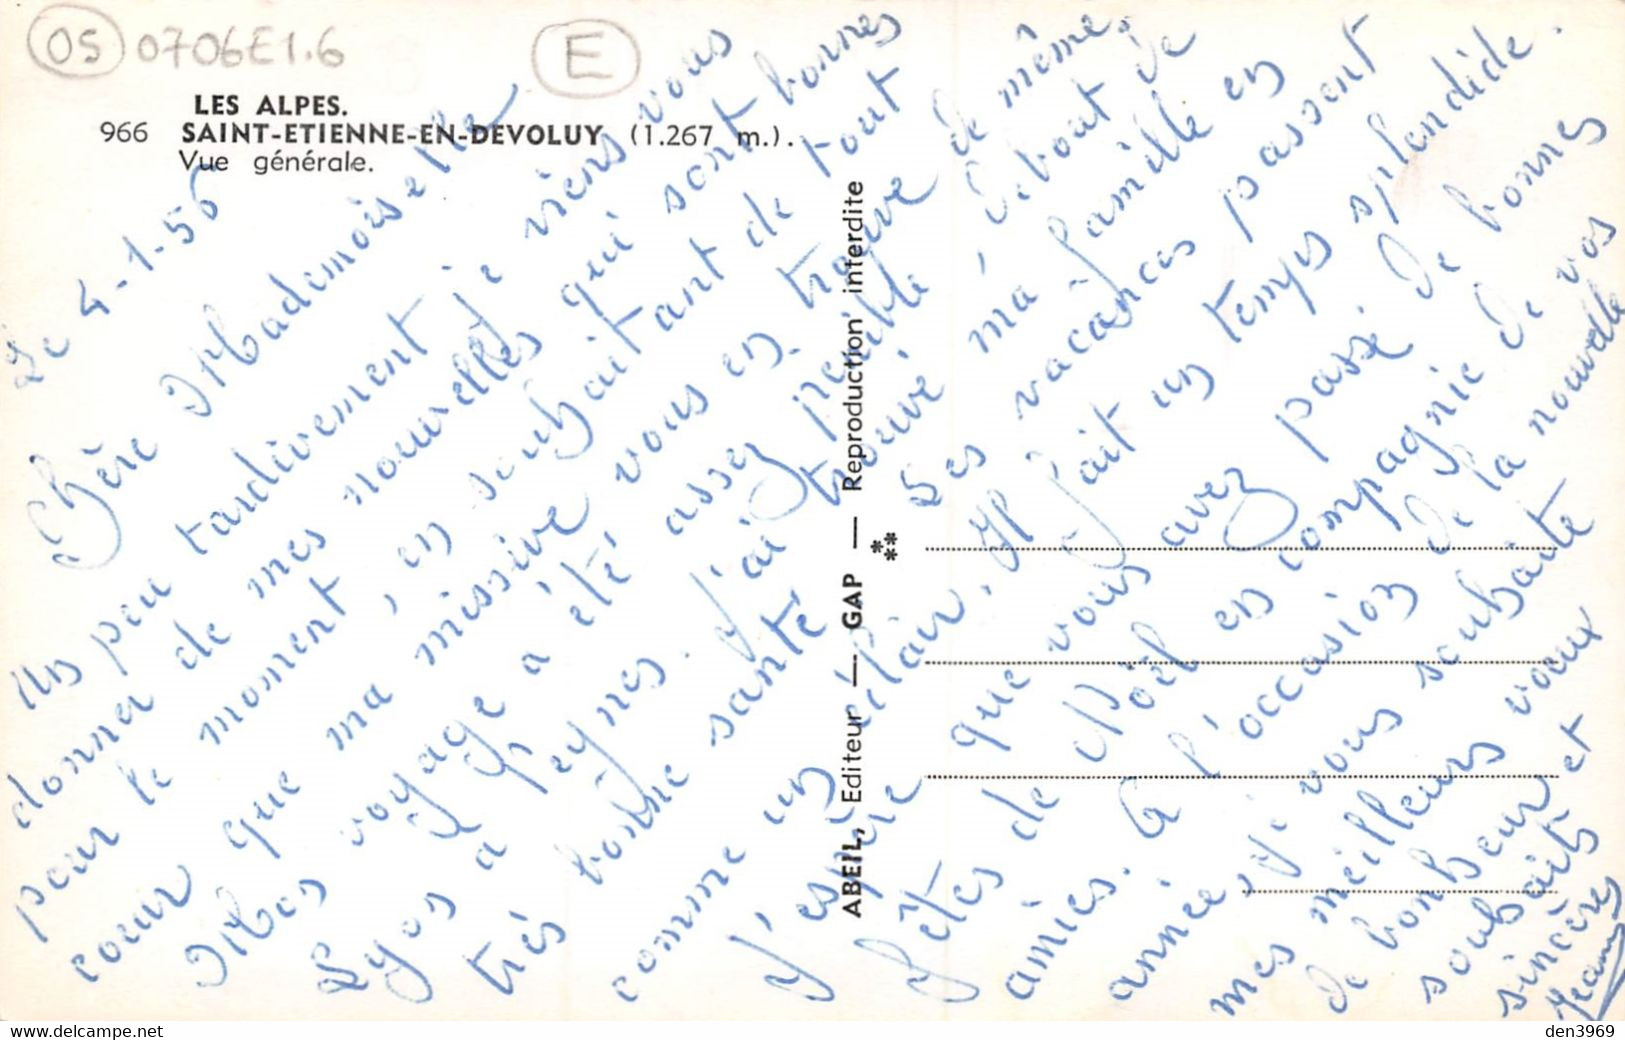 OS 0706E1.6
E
LES ALPES.
966 SAINT-ETIENNE-EN-DEVOLUY (1.267 m.).
Vue générale.
Le 4-1-56
Chère Mademoiselle
Un peu tardivement je viens vous
donner de mes nouvelles qui sont bonnes
pour le moment, en souhaitant de tout
cœur que ma missive vous en trouve de même.
Mon voyage a été assez pénible debout de
Lyon à Veynes. J'ai trouvé ma famille en
très bonne santé Les vacances passent
comme un éclair. Il fait un temps splendide.
J'espère que vous avez passé de bonnes
fêtes de Noël en compagnie de vos
amies. A l'occasion de la nouvelle
année, je vous souhaite
mes meilleurs voeux
de bonheur et
souhaits
sincères
Jeanne
ABEIL, Editeur — GAP — Reproduction interdite
den3969